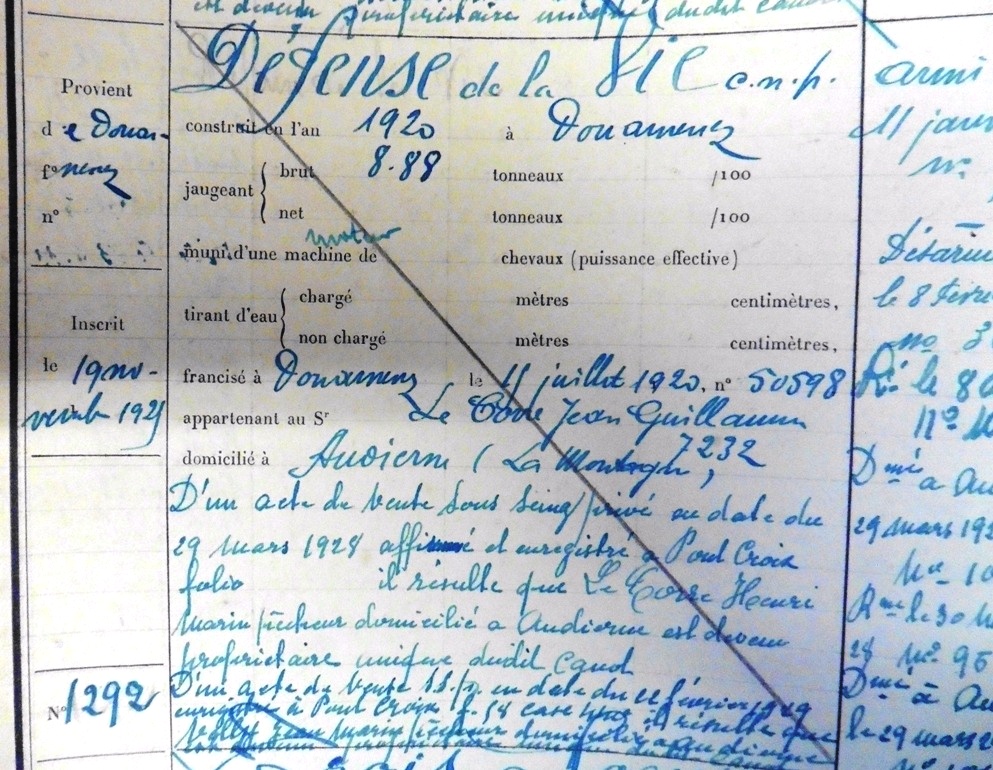 est devenu propriétaire unique dudit canot
Défense de la Vie c.n.p.
Provient
de Douar-
nenez
n°
construit en l'an 1920 à Douarnenez
jaugeant { brut 8.88 tonneaux /100
net tonneaux /100
moteur
muni d'une machine de chevaux (puissance effective)
tirant d'eau { chargé mètres centimètres,
non chargé mètres centimètres,
Inscrit
le 19 no-
vembre 1925
francisé à Douarnenez le 11 juillet 1920, n° 50598
appartenant au Sr Le Corre Jean Guillaume
domicilié à Audierne (La Montagne, 7232
D'un acte de vente sous seing privé en date du
29 mars 1928 et enregistré à Pont Croix
folio il résulte que Le Corre Henri
marin pêcheur domicilié à Audierne est devenu
propriétaire unique dudit canot
N° 1292
D'un acte de vente s.s.p. en date du février
enregistré à Pont Croix f. 58 case il résulte que
Jean marin pêcheur domicilié à Audierne
est devenu propriétaire unique
armé
11 janv
n°
Désarm
le 8 Févri
no 3
Ré le 8
n°
Dmé à Au
29 mars 192
n° 10
Rmé le 30 M
28 n° 95
Dmé à Au
le 29 mars 2